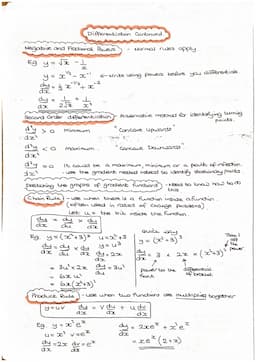 Differentiation Continued
Negative and Fractional Powers - Normal rules apply
Eg y = √x - 1/x
y = x^½ - x⁻¹ ← write using powers before you differentiate
dy/dx = ½ x^-½ + x⁻²
dy/dx = 1/2√x + 1/x²
Second Order differentiation - Alternative method for identifying turning points.
d²y/dx² > 0 minimum "Concave upwards"
d²y/dx² < 0 Maximum "Concave downwards"
d²y/dx² = 0 It could be a maximum, minimum or a point of inflection
- use the gradient method to identify stationary points
Sketching the graphs of gradient functions - Need to know how to do this
Chain Rule - use when there is a function inside a function
(often used in rates of change problems)
dy/dx = dy/du × du/dx Let u = the bit inside the function
Eg y = (x²+3)³ u = x²+3
dy/dx = dy/du × du/dx y = u³
du/dx = 2x
= 3u² × 2x dy/du = 3u²
= 6x u²
= 6x(x²+3)²
y = (x²+3)³
dy/dx = 3 × 2x × (x²+3)²
power to the front
differential of bracket
Take 1 off the power
Product Rule - use when two functions are multiplied together
y = uv dy/dx = v du/dx + u dv/dx
Eg y = x² eˣ
u = x² v = eˣ
du/dx = 2x dv/dx = eˣ
dy/dx = 2xeˣ + x²eˣ
= xeˣ(2+x)